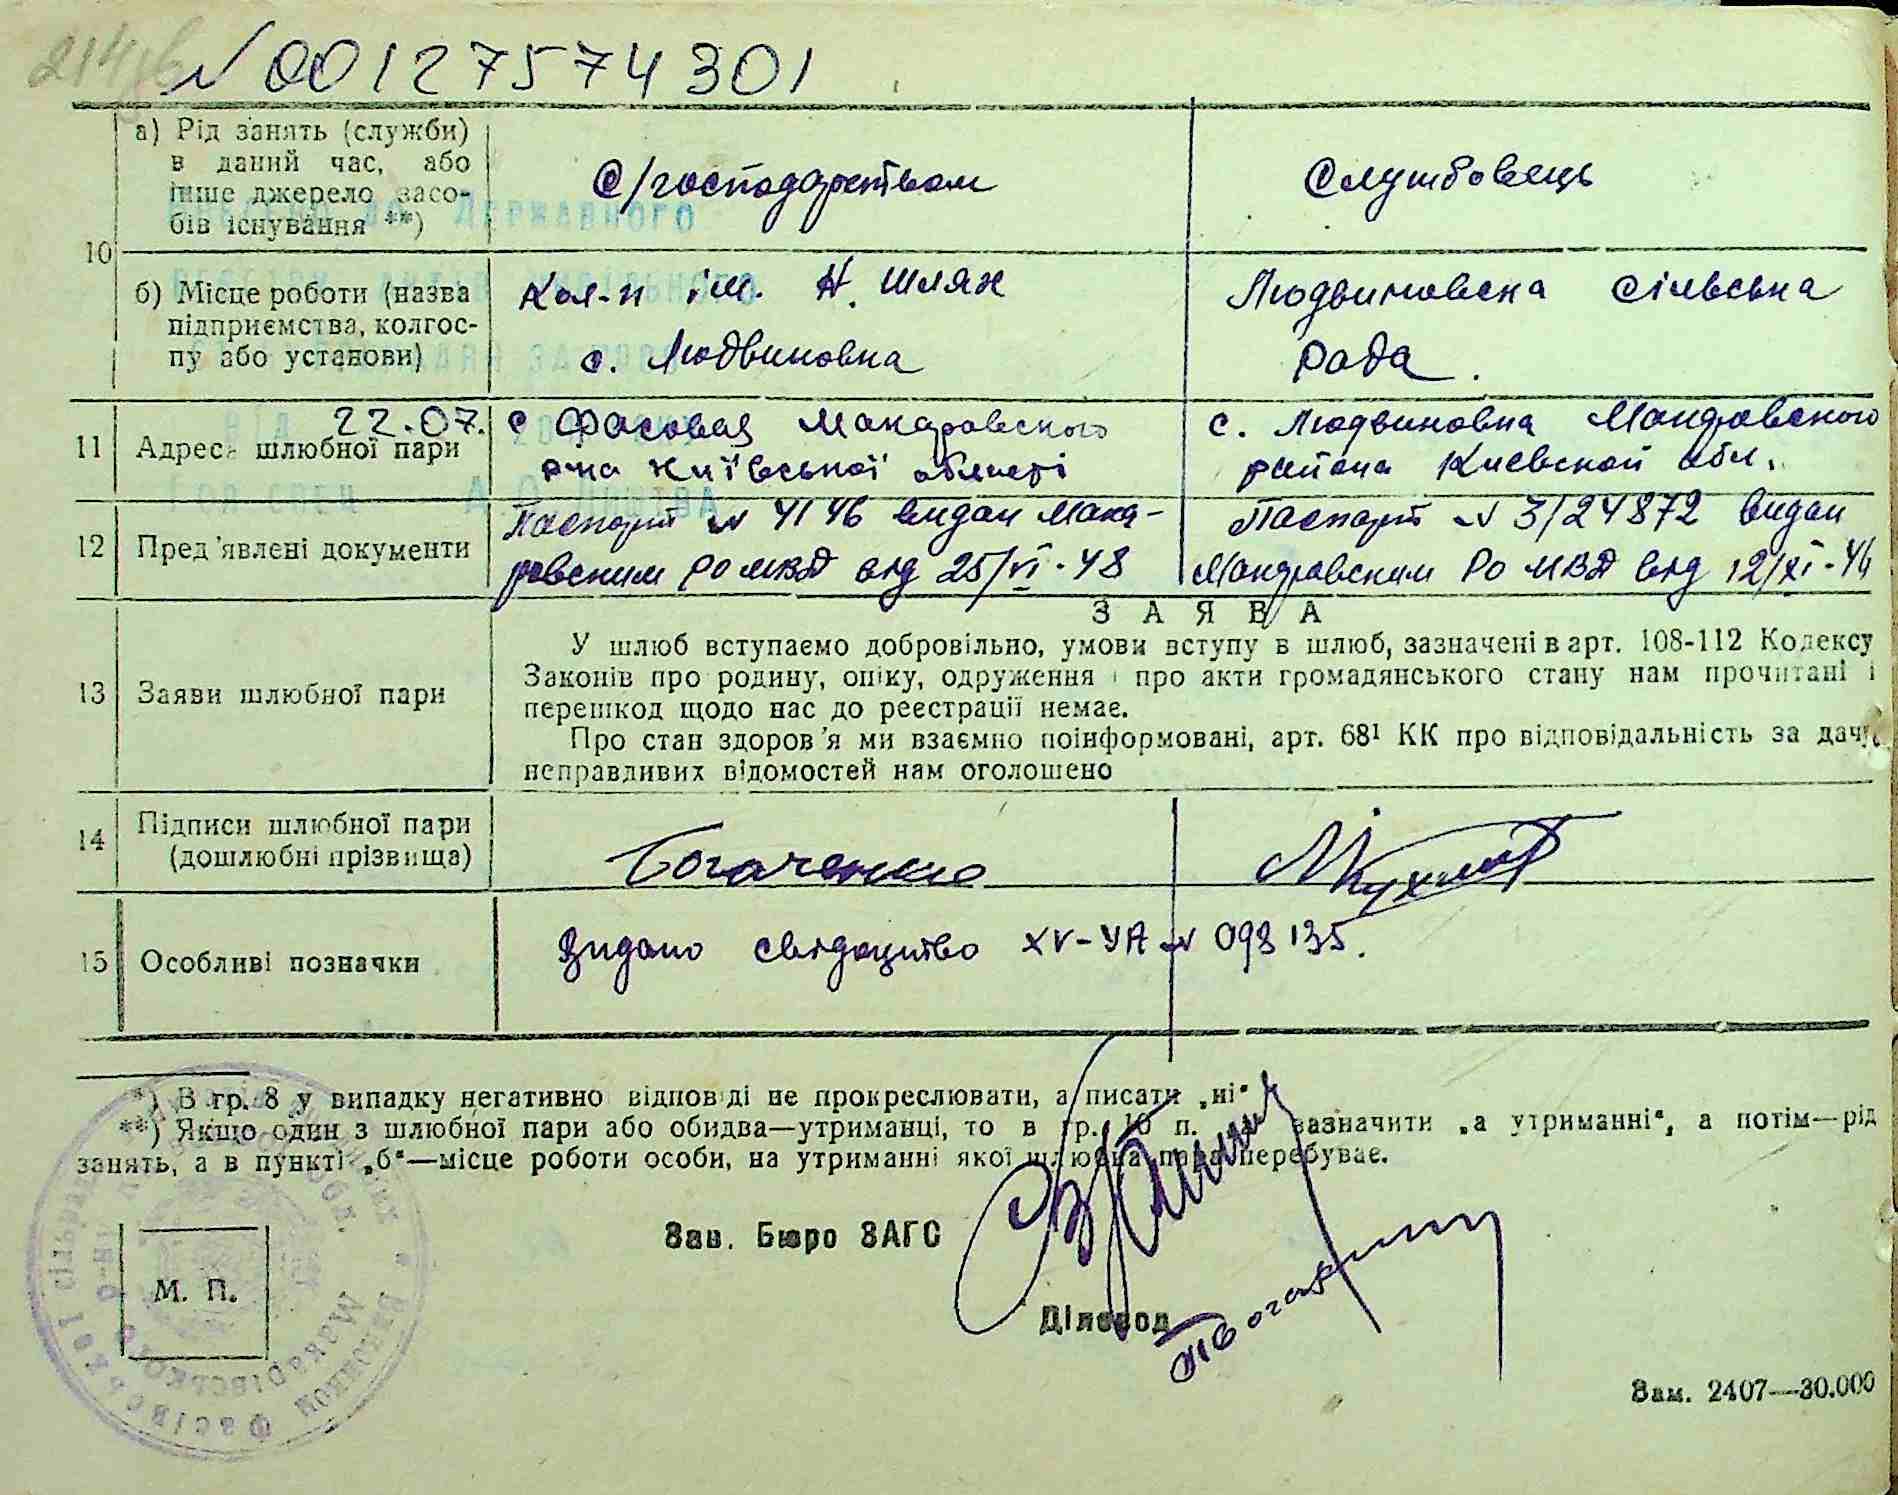 N 00127574301
а) Рід занять (служби) в даний час, або інше джерело засобів існування **)
С/господарством
Службовець
10
б) Місце роботи (назва підприємства, колгоспу або установи)
Кол-п ім. Н. Шлях
с. Людвиновка
Людвиновска сільська
рада.
22.07.
11
Адреса шлюбної пари
с Фасовая Макаровского
р-на Київської області
с. Людвиновка Макаровского
района Киевской обл.
12
Пред'явлені документи
Паспорт N 4146 видан Мака-
ровским РО МВД від 25/VI-48
Паспорт N 3/24872 видан
Макаровским РО МВД від 12/XI-46
З А Я В А
13
Заяви шлюбної пари
У шлюб вступаємо добровільно, умови вступу в шлюб, зазначені в арт. 108-112 Кодексу
Законів про родину, опіку, одруження і про акти громадянського стану нам прочитані і
перешкод щодо нас до реєстрації немає.
Про стан здоров'я ми взаємно поінформовані, арт. 68¹ КК про відповідальність за дачу
неправдивих відомостей нам оголошено
14
Підписи шлюбної пари
(дошлюбні прізвища)
Богаченко
15
Особливі позначки
Видано свідоцтво XV-УА N 093135.
*) В гр. 8 у випадку негативно відповіді не прокреслювати, а писати „ні“
**) Якщо один з шлюбної пари або обидва—утриманці, то в гр. 10 п. зазначити „а утриманні“, а потім—рід
занять, а в пункті „б“—місце роботи особи, на утриманні якої шлюбна пара перебуває.
Зав. Бюро ЗАГС
М. П.
Діловод
Зам. 2407—30.000